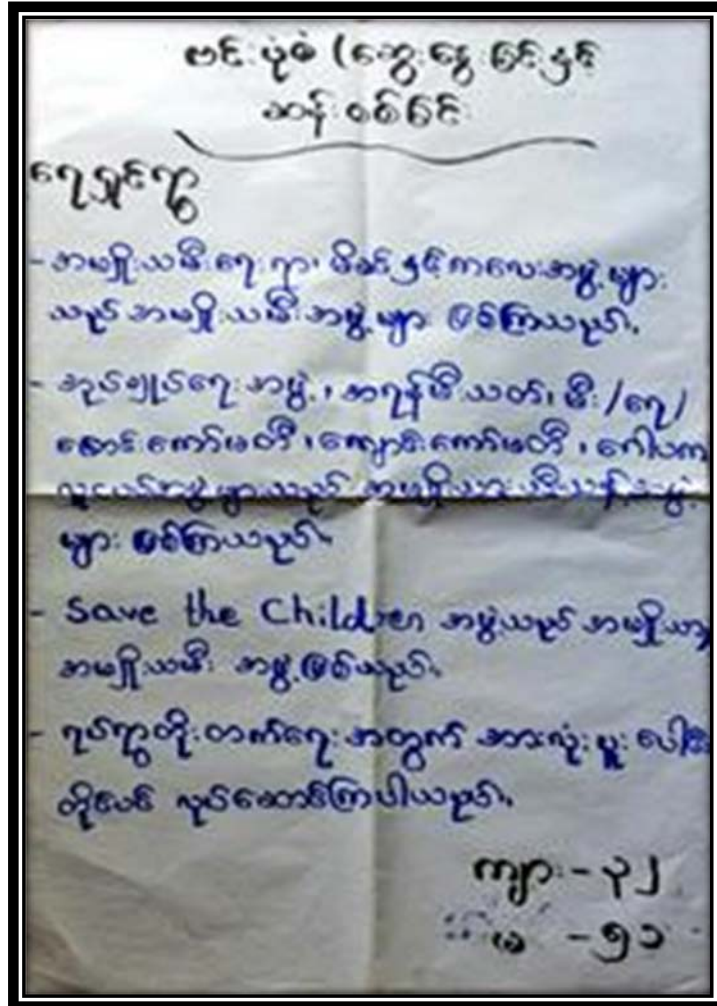 ဗင်းပုံစံ (ဆွေးနွေးခြင်းနှင့်
ဆန်းစစ်ခြင်း
ရေရှင်ရွာ
- အမျိုးသမီးရေးရာ၊ မိခင်နှင့်ကလေးအဖွဲ့များ
သည် အမျိုးသမီးအဖွဲ့များ ဖြစ်ကြသည်။
- အုပ်ချုပ်ရေးအဖွဲ့၊ အရန်မီးသတ်၊ မီး/ရေ/
ကျောင်းကော်မတီ၊ ဂေါပက
လူငယ်အဖွဲ့များသည်
များ ဖြစ်ကြသည်။
- Save the Children အဖွဲ့သည် အမျိုးသား
အမျိုးသမီး အဖွဲ့ဖြစ်သည်။
- ရပ်ရွာတိုးတက်ရေးအတွက် အားလုံးပူးပေါင်း
တိုင်ပင် လုပ်ဆောင်ကြပါသည်။
ကျား - ၃၂
မ - ၅၁